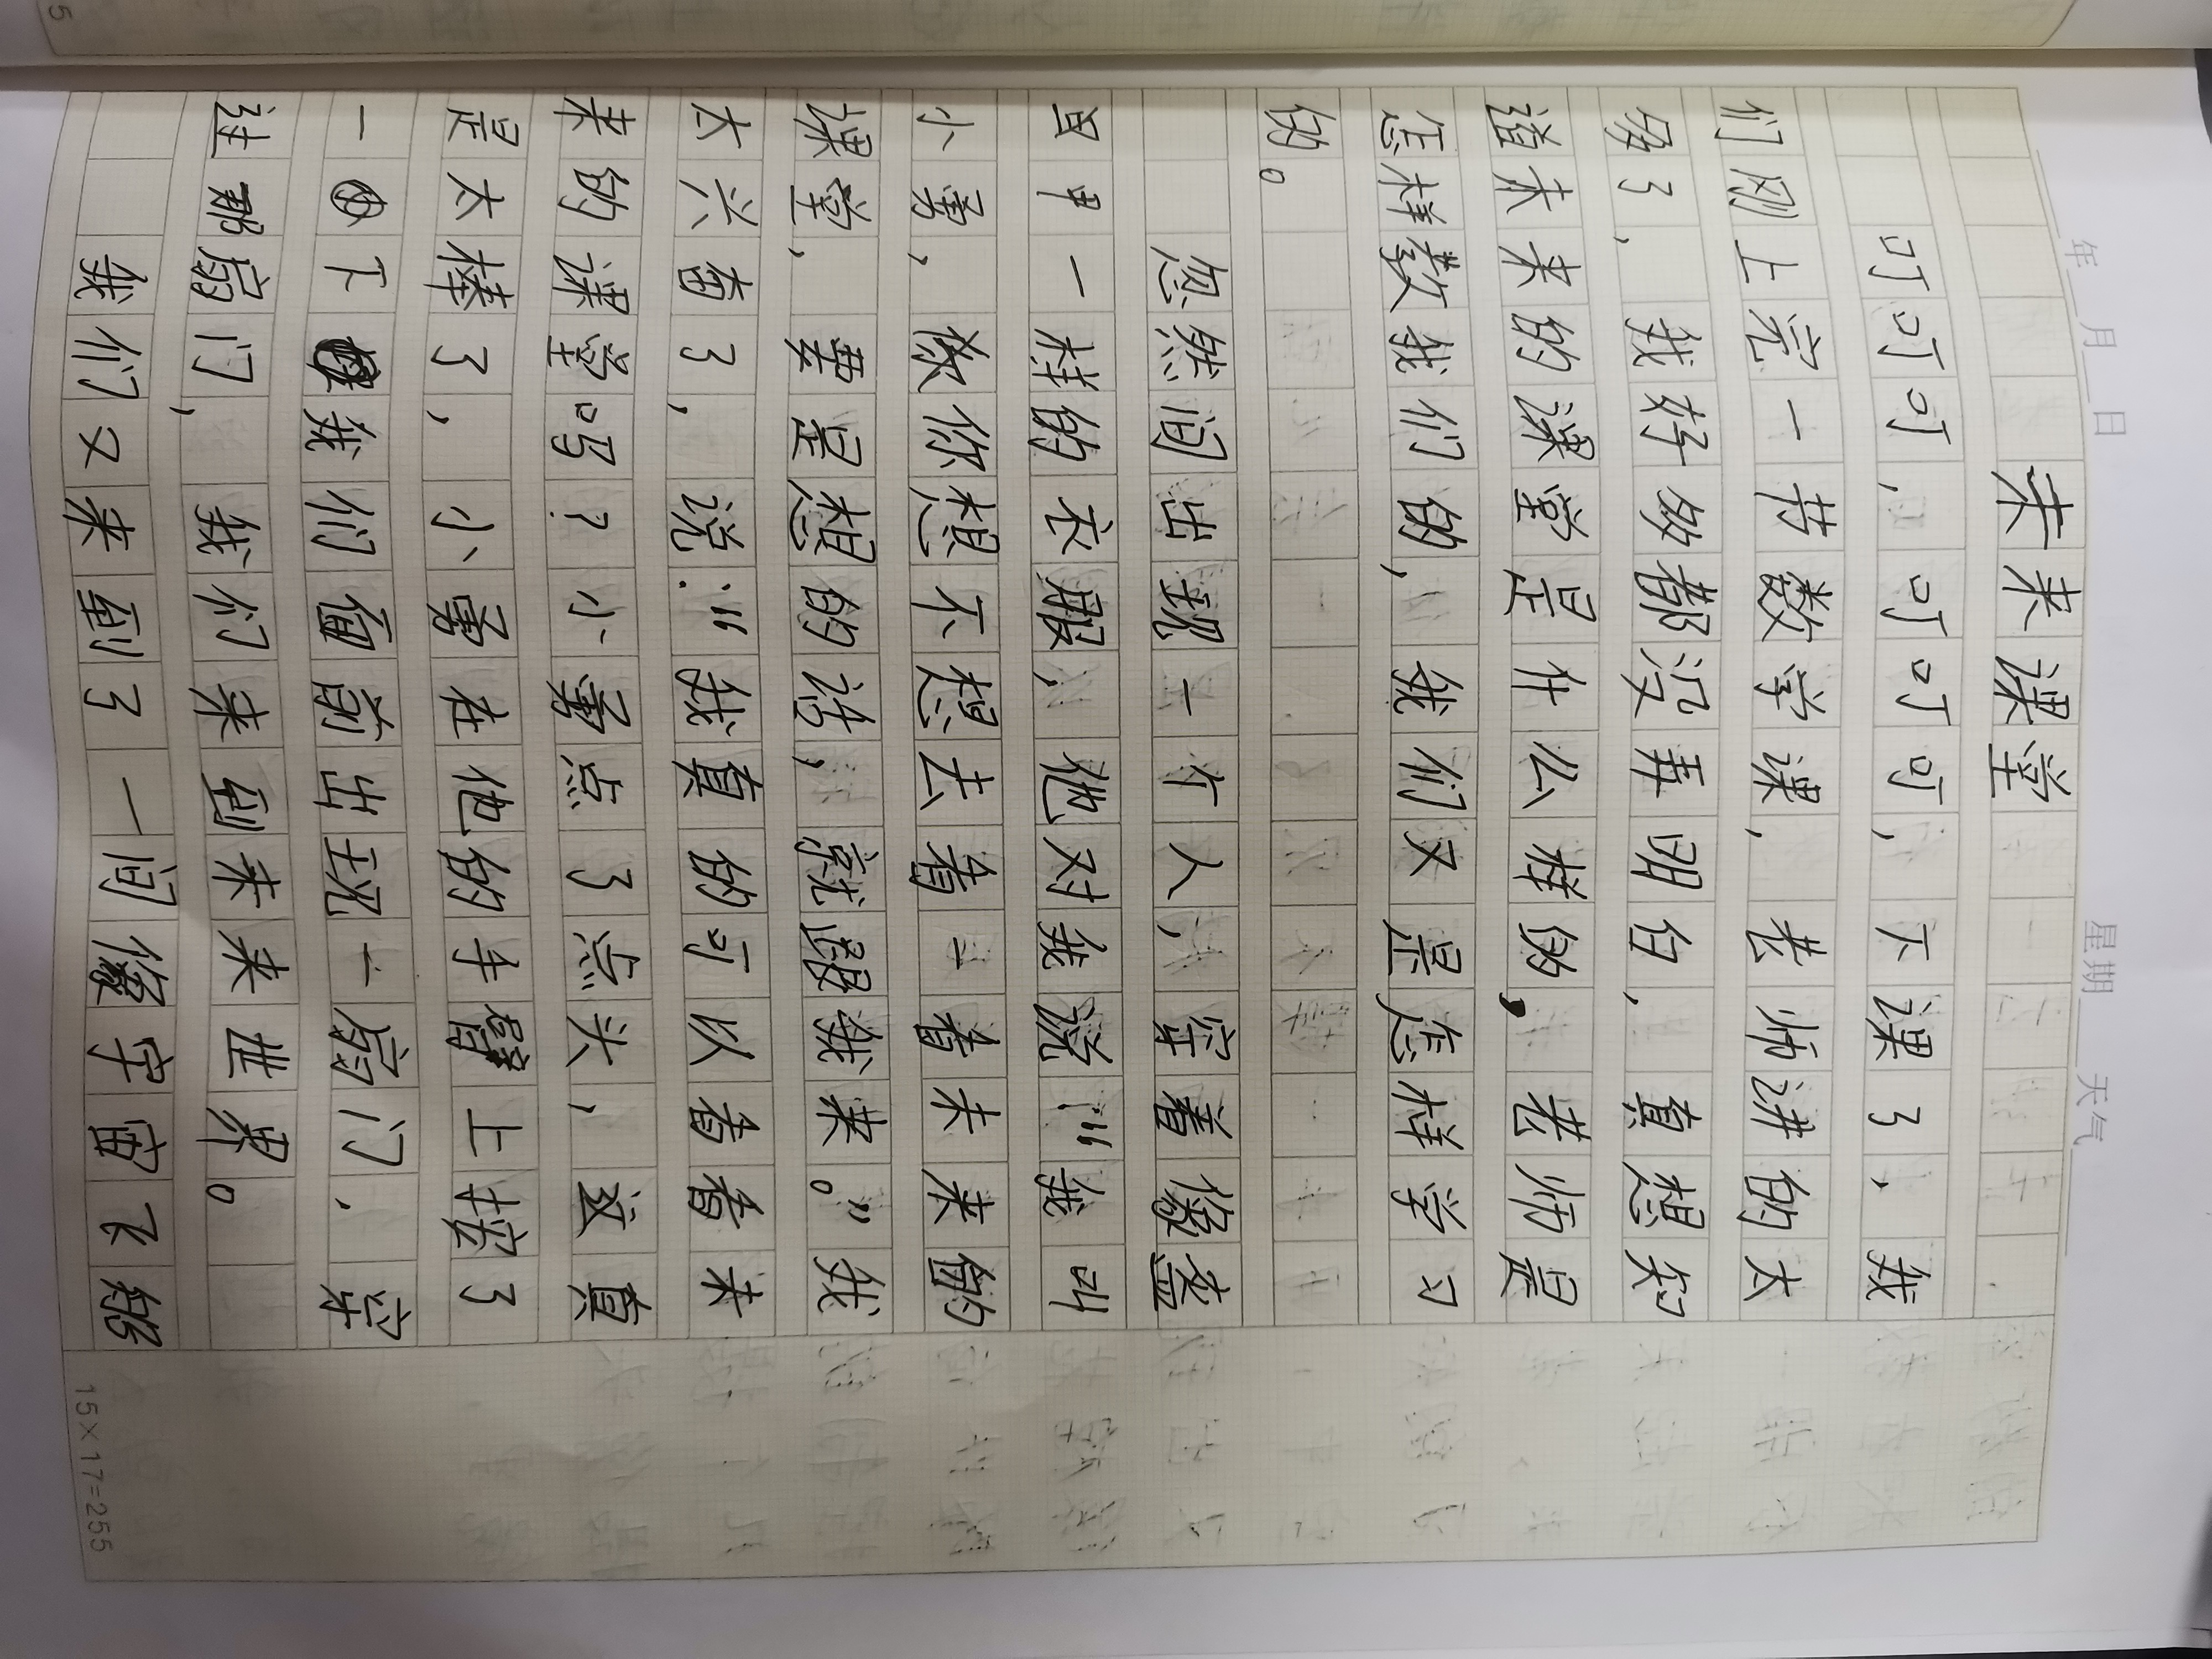 年 月 日 星期 天气
未来课堂
叮叮叮,叮叮叮,下课了,我
们刚上完一节数学课,老师讲的太
多了,我好多都没弄明白,真想知
道未来的课堂是什么样的,老师是
怎样教我们的,我们又是怎样学习
的。
忽然间出现一个人,穿着像盔
甲一样的衣服,他对我说:“我叫
小勇,你想不想去看一看未来的
课堂,要是想的话,就跟我来。”我
太兴奋了,说:“我真的可以看看未
来的课堂吗?小勇点了点头,这真
是太棒了,小勇在他的手臂上按了
一下我们面前出现一扇门,穿
过那扇门,我们来到未来世界。
我们又来到了一间像宇宙飞船
15×17=255
5